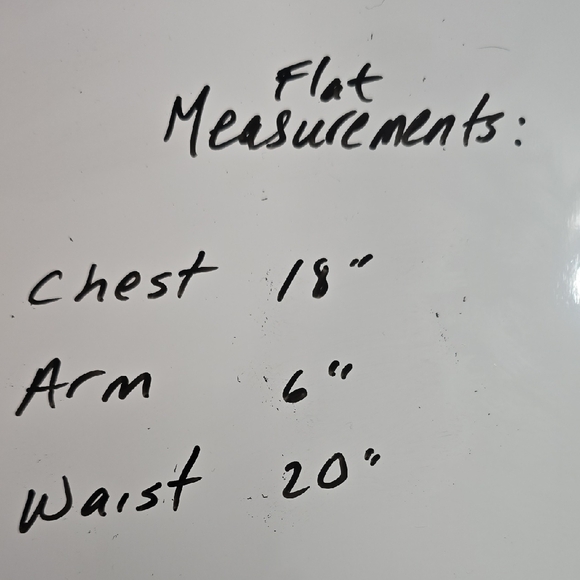 Flat
Measurements:
Chest 18"
Arm 6"
Waist 20"